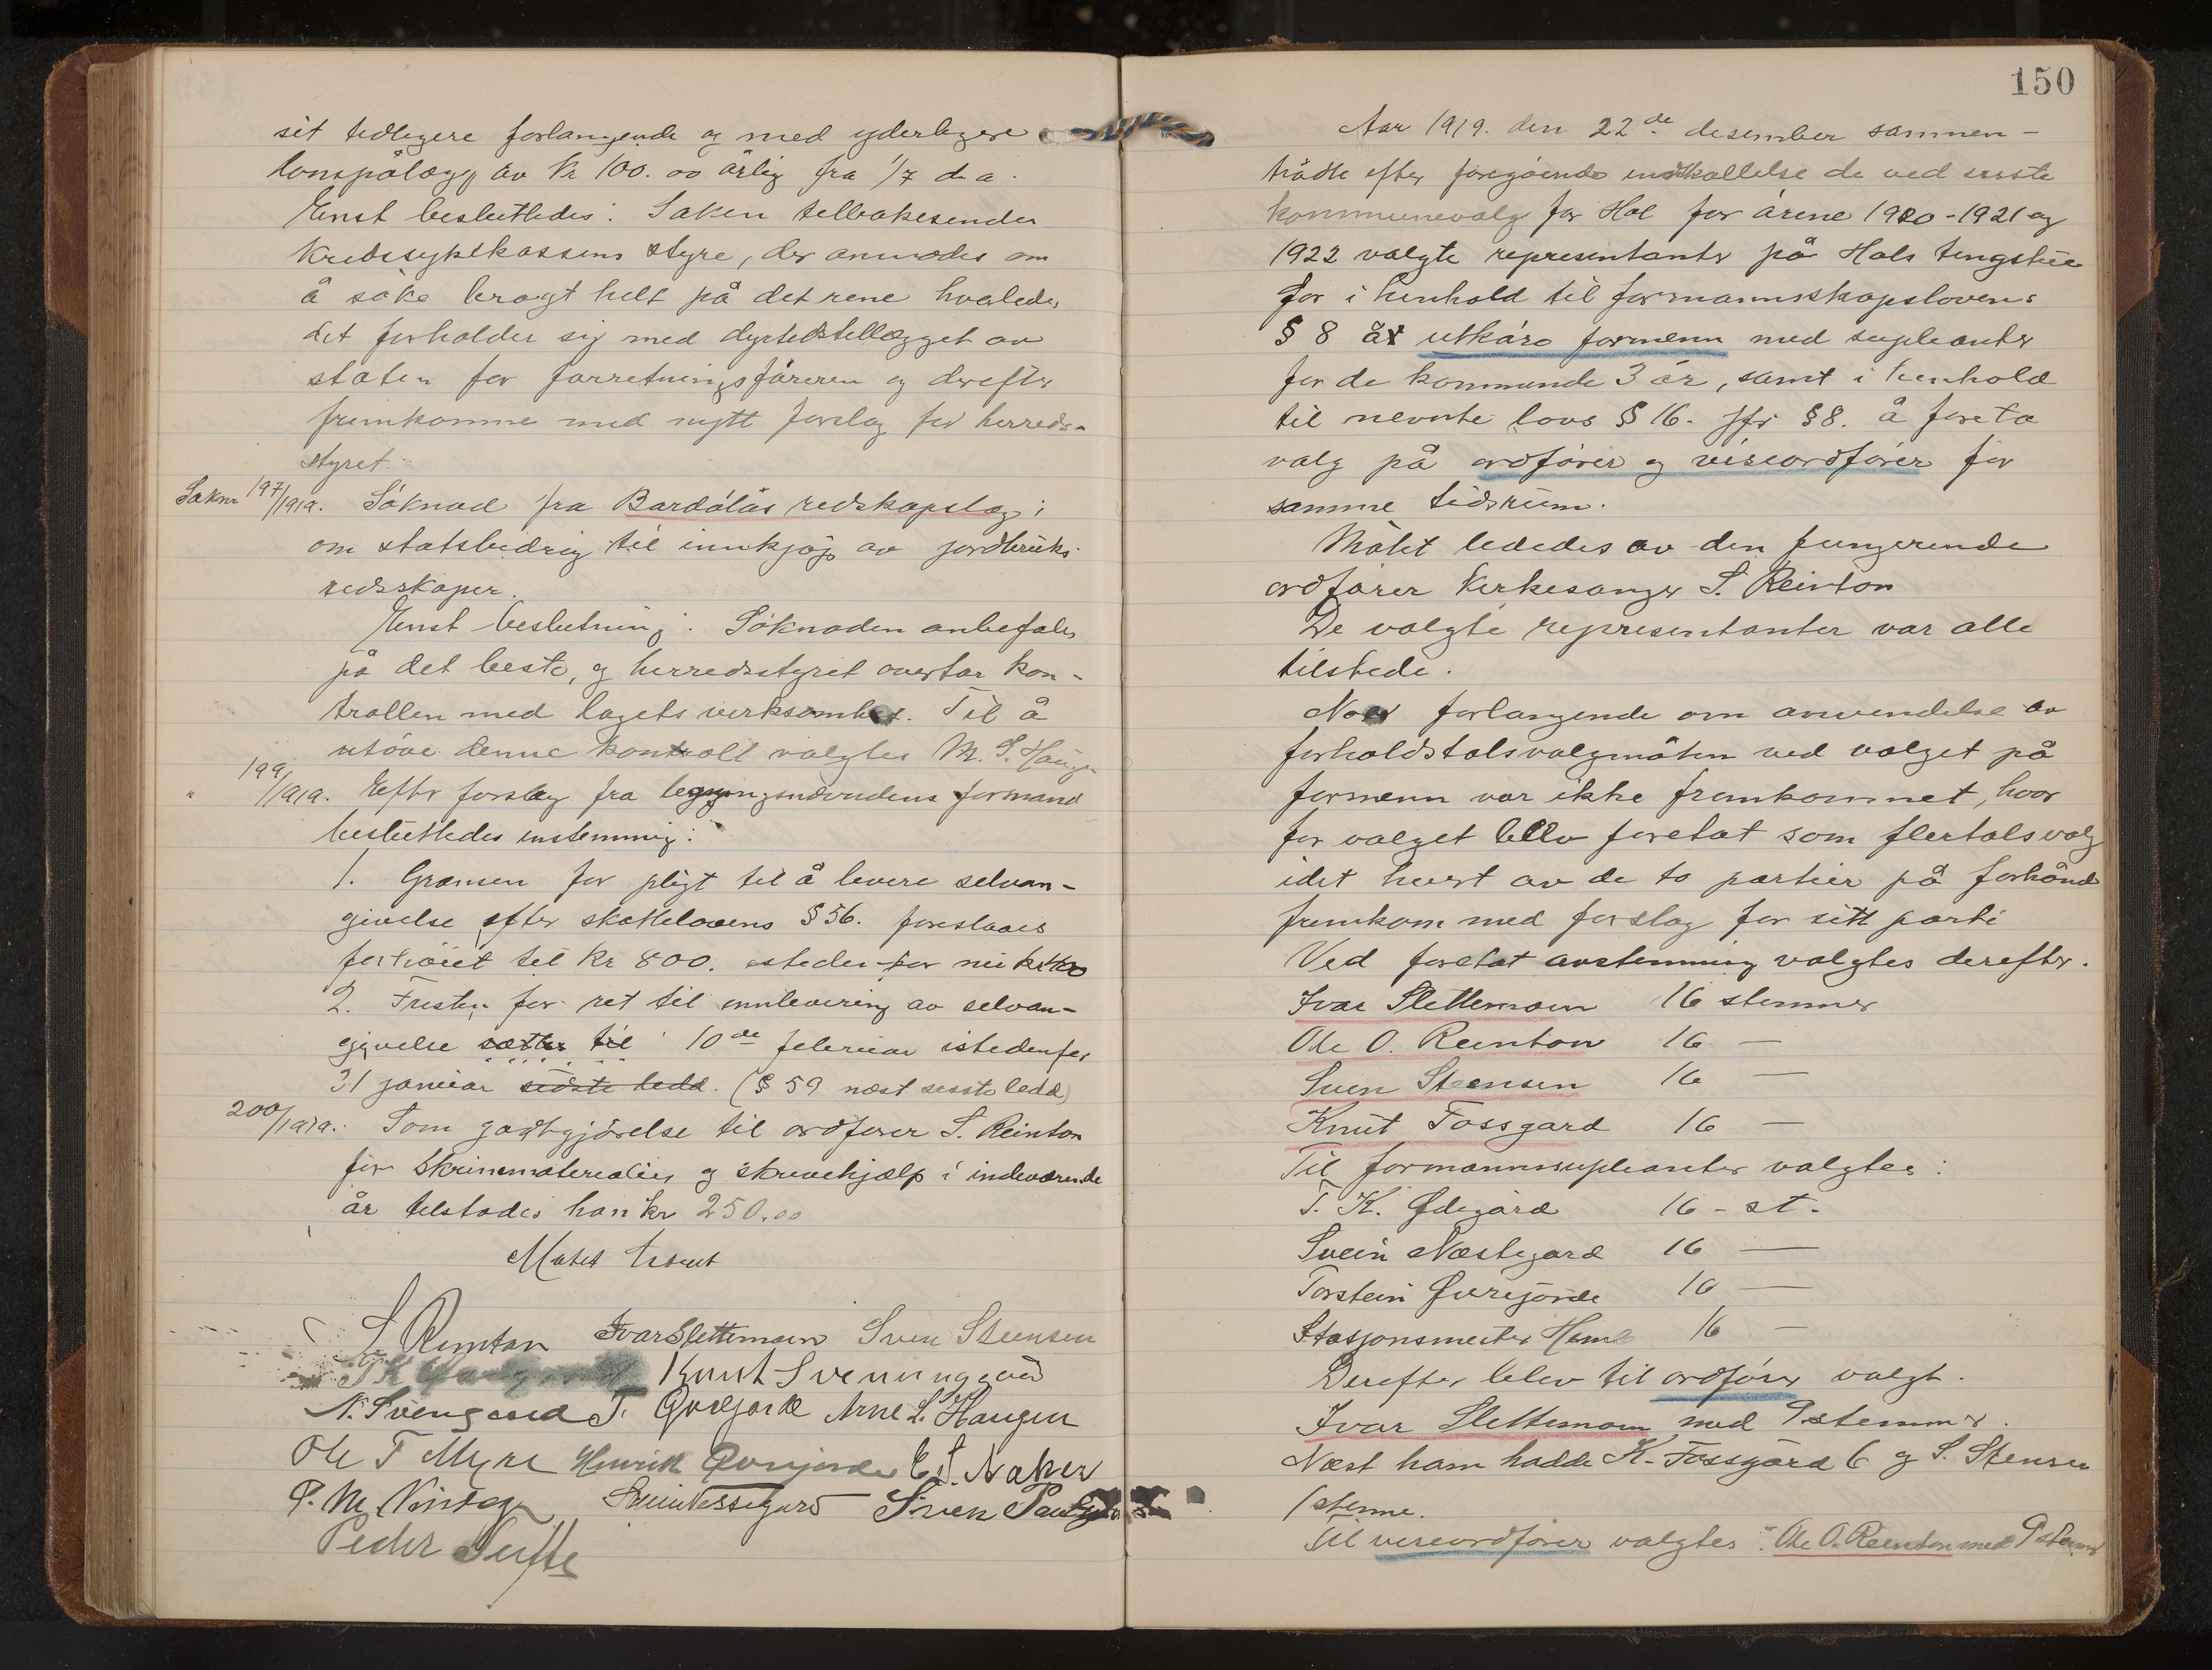 sit tidligere forlangende og med yderligere
lonspålæg av kr 100.00 årlig fra 1/7 d.a.
Enst besluttedes: Saken tilbakesendes
kredssykekassens styre, der anmodes om
å söke bragt helt på det rene hvorledes
det forholder sig med dyrtidstillægget av
staten for forretningsföreren og derefter
fremkomme med nytt forslag for herreds-
styret.
Saknr 197/1919. Söknad fra Bardölås redskapslag i
om statsbidrag til innkjöp av jordbruks-
redskaper.
Enst beslutning: Söknaden anbefales
på det beste, og herredsstyret overtar kon-
trollen med lagets verksomhet. Til å
utöve denne kontroll valgtes M. S. Haugen
" 199/1919. Efter forslag fra ligningsnævndens formand
besluttedes enstemmig:
1. Grænsen for pligt til å levere selvan-
givelse efter skattelovens § 56. foreslaaes
forhöiet til kr 800. isteden for nu kr 400
2. Fristen for ret til innlevering av selvan-
givelse sættes til 10de februar istedenfor
31 januar sidste ledd. (§ 59 næst sisste ledd)
200/1919. Som godtgjörelse til ordförer S. Reinton
for skrivematerialier og skrivehjælp i indeværende
år tilstodes han kr 250.00
Mötet hevet
S. Reinton Ivar Slettemoen Sven Steensen
Knut Svenunggard
N. Svengaard T. Qvrejorde Arne L. Haugen
Ole T Myre Henrik Qvrejorde E. S. Naker
P. M. Svein Nestegard Sven
Peder Tufte
150
Aar 1919. den 22de desember sammen-
trådte efter foregående indkallelse de ved sisste
kommunevalg for Hol for årene 1920-1921 og
1922 valgte representanter på Hols tingstue
for i henhold til formannskapslovens
§ 8 at utkåre formenn med supleanter
for de kommende 3 år, samt i henhold
til nevnte lovs § 16. jfr § 8. å foreta
valg på ordförer og viseordförer for
samme tidsrum.
Mötet lededes av den fungerende
ordförer kirkesanger S. Reinton
De valgte representanter var alle
tilstede.
Noer forlangende om anvendelse av
forholdstalsvalgmåten ved valget på
formenn var ikke fremkommet, hvor
for valget blev foretat som flertalsvalg
idet hvert av de to partier på forhånd
fremkom med forslag for sitt parti
Ved foretat avstemning valgtes derefter.
Ivar Slettemoen 16 stemmer
Ole O. Reinton 16 —
Sven Steensen 16 —
Knut Fossgard 16 —
Til formannssupleanter valgtes:
T. K. Ødegård 16 - st.
Svein Næstegard 16 —
Torstein Øvrejorde 16 —
Stasjonsmester 16 —
Derefter blev til ordförer valgt.
Ivar Slettemoen med 9 stemmer.
Næst ham hadde K. Fossgård 6 og S. Stensen
1 stemme.
Til viseordförer valgtes: Ole O. Reinton med 9 stemmer